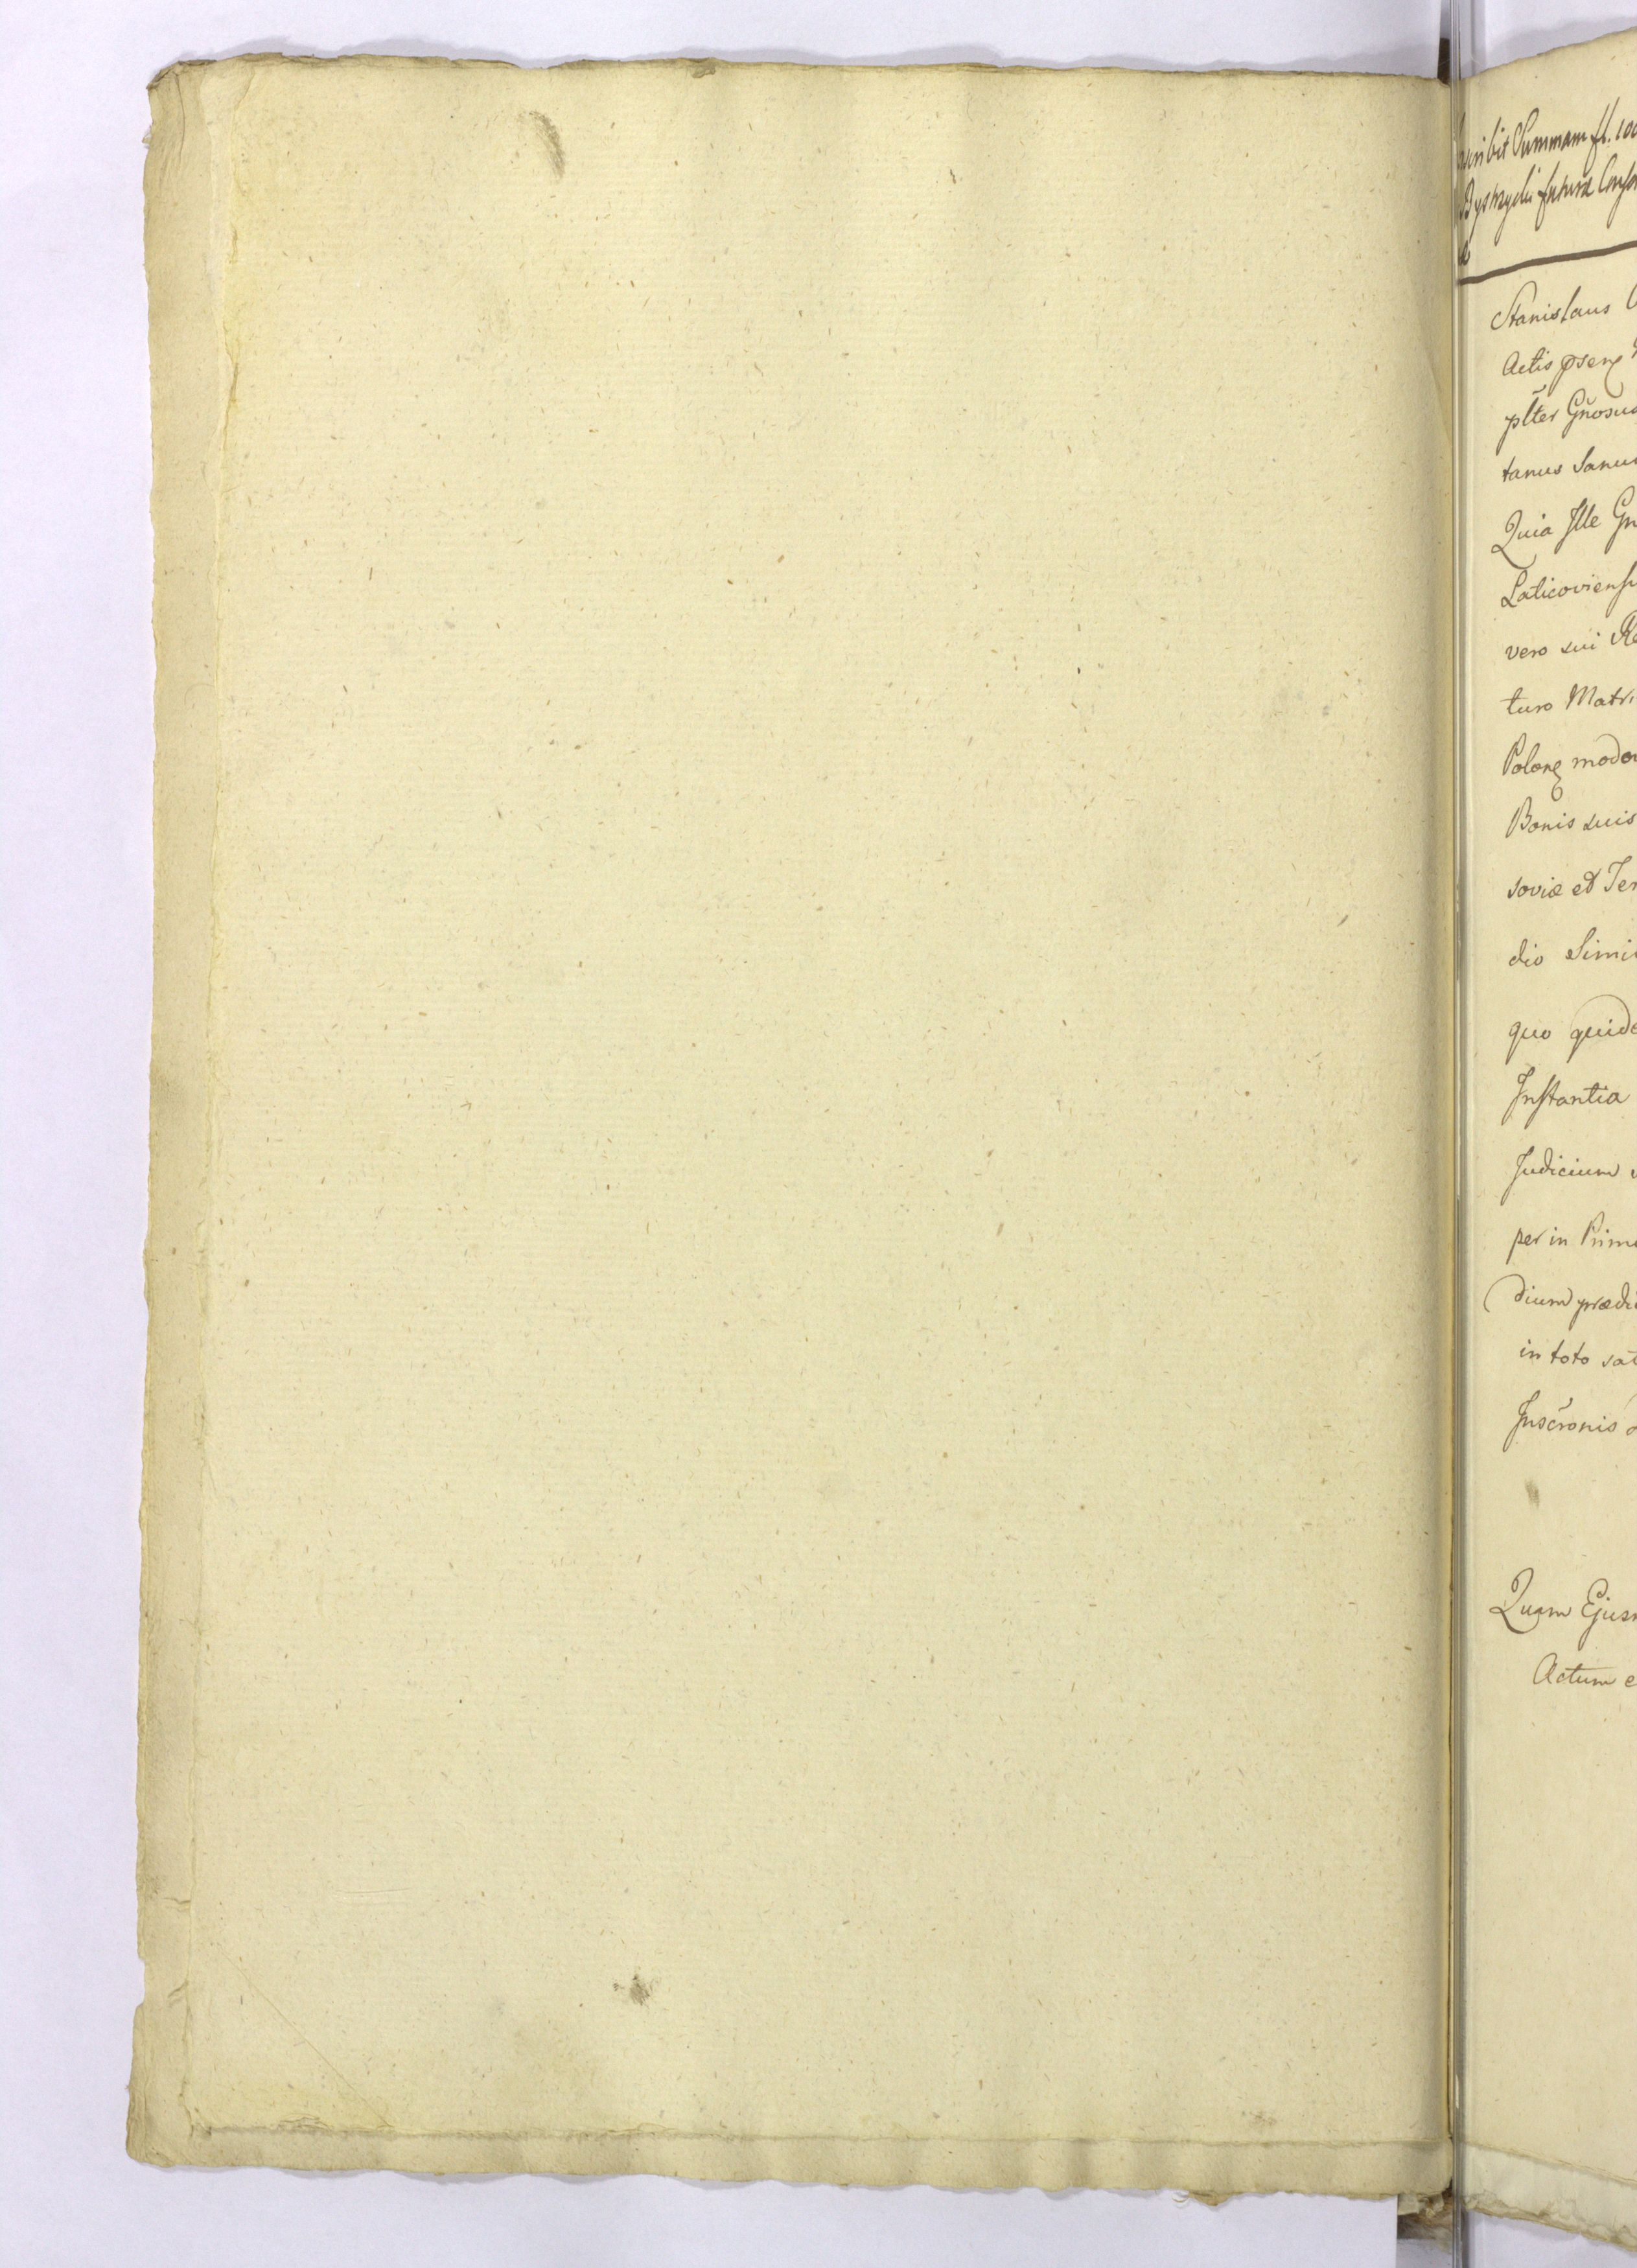 Summam fl. 100
futura
Stanislaus
Actis psen
plter Gnosu
tanus Sanu
Quia Ille Gn
Laticoviens
vero sui Re
turo Matri
Polone modo
Bonis suis
soviæ et Ter
dio Simi
quo quide
Instantia
Judicium
per in Prim
dium prædi
in toto sat
Inscronis
Quam Ejus
Actum e